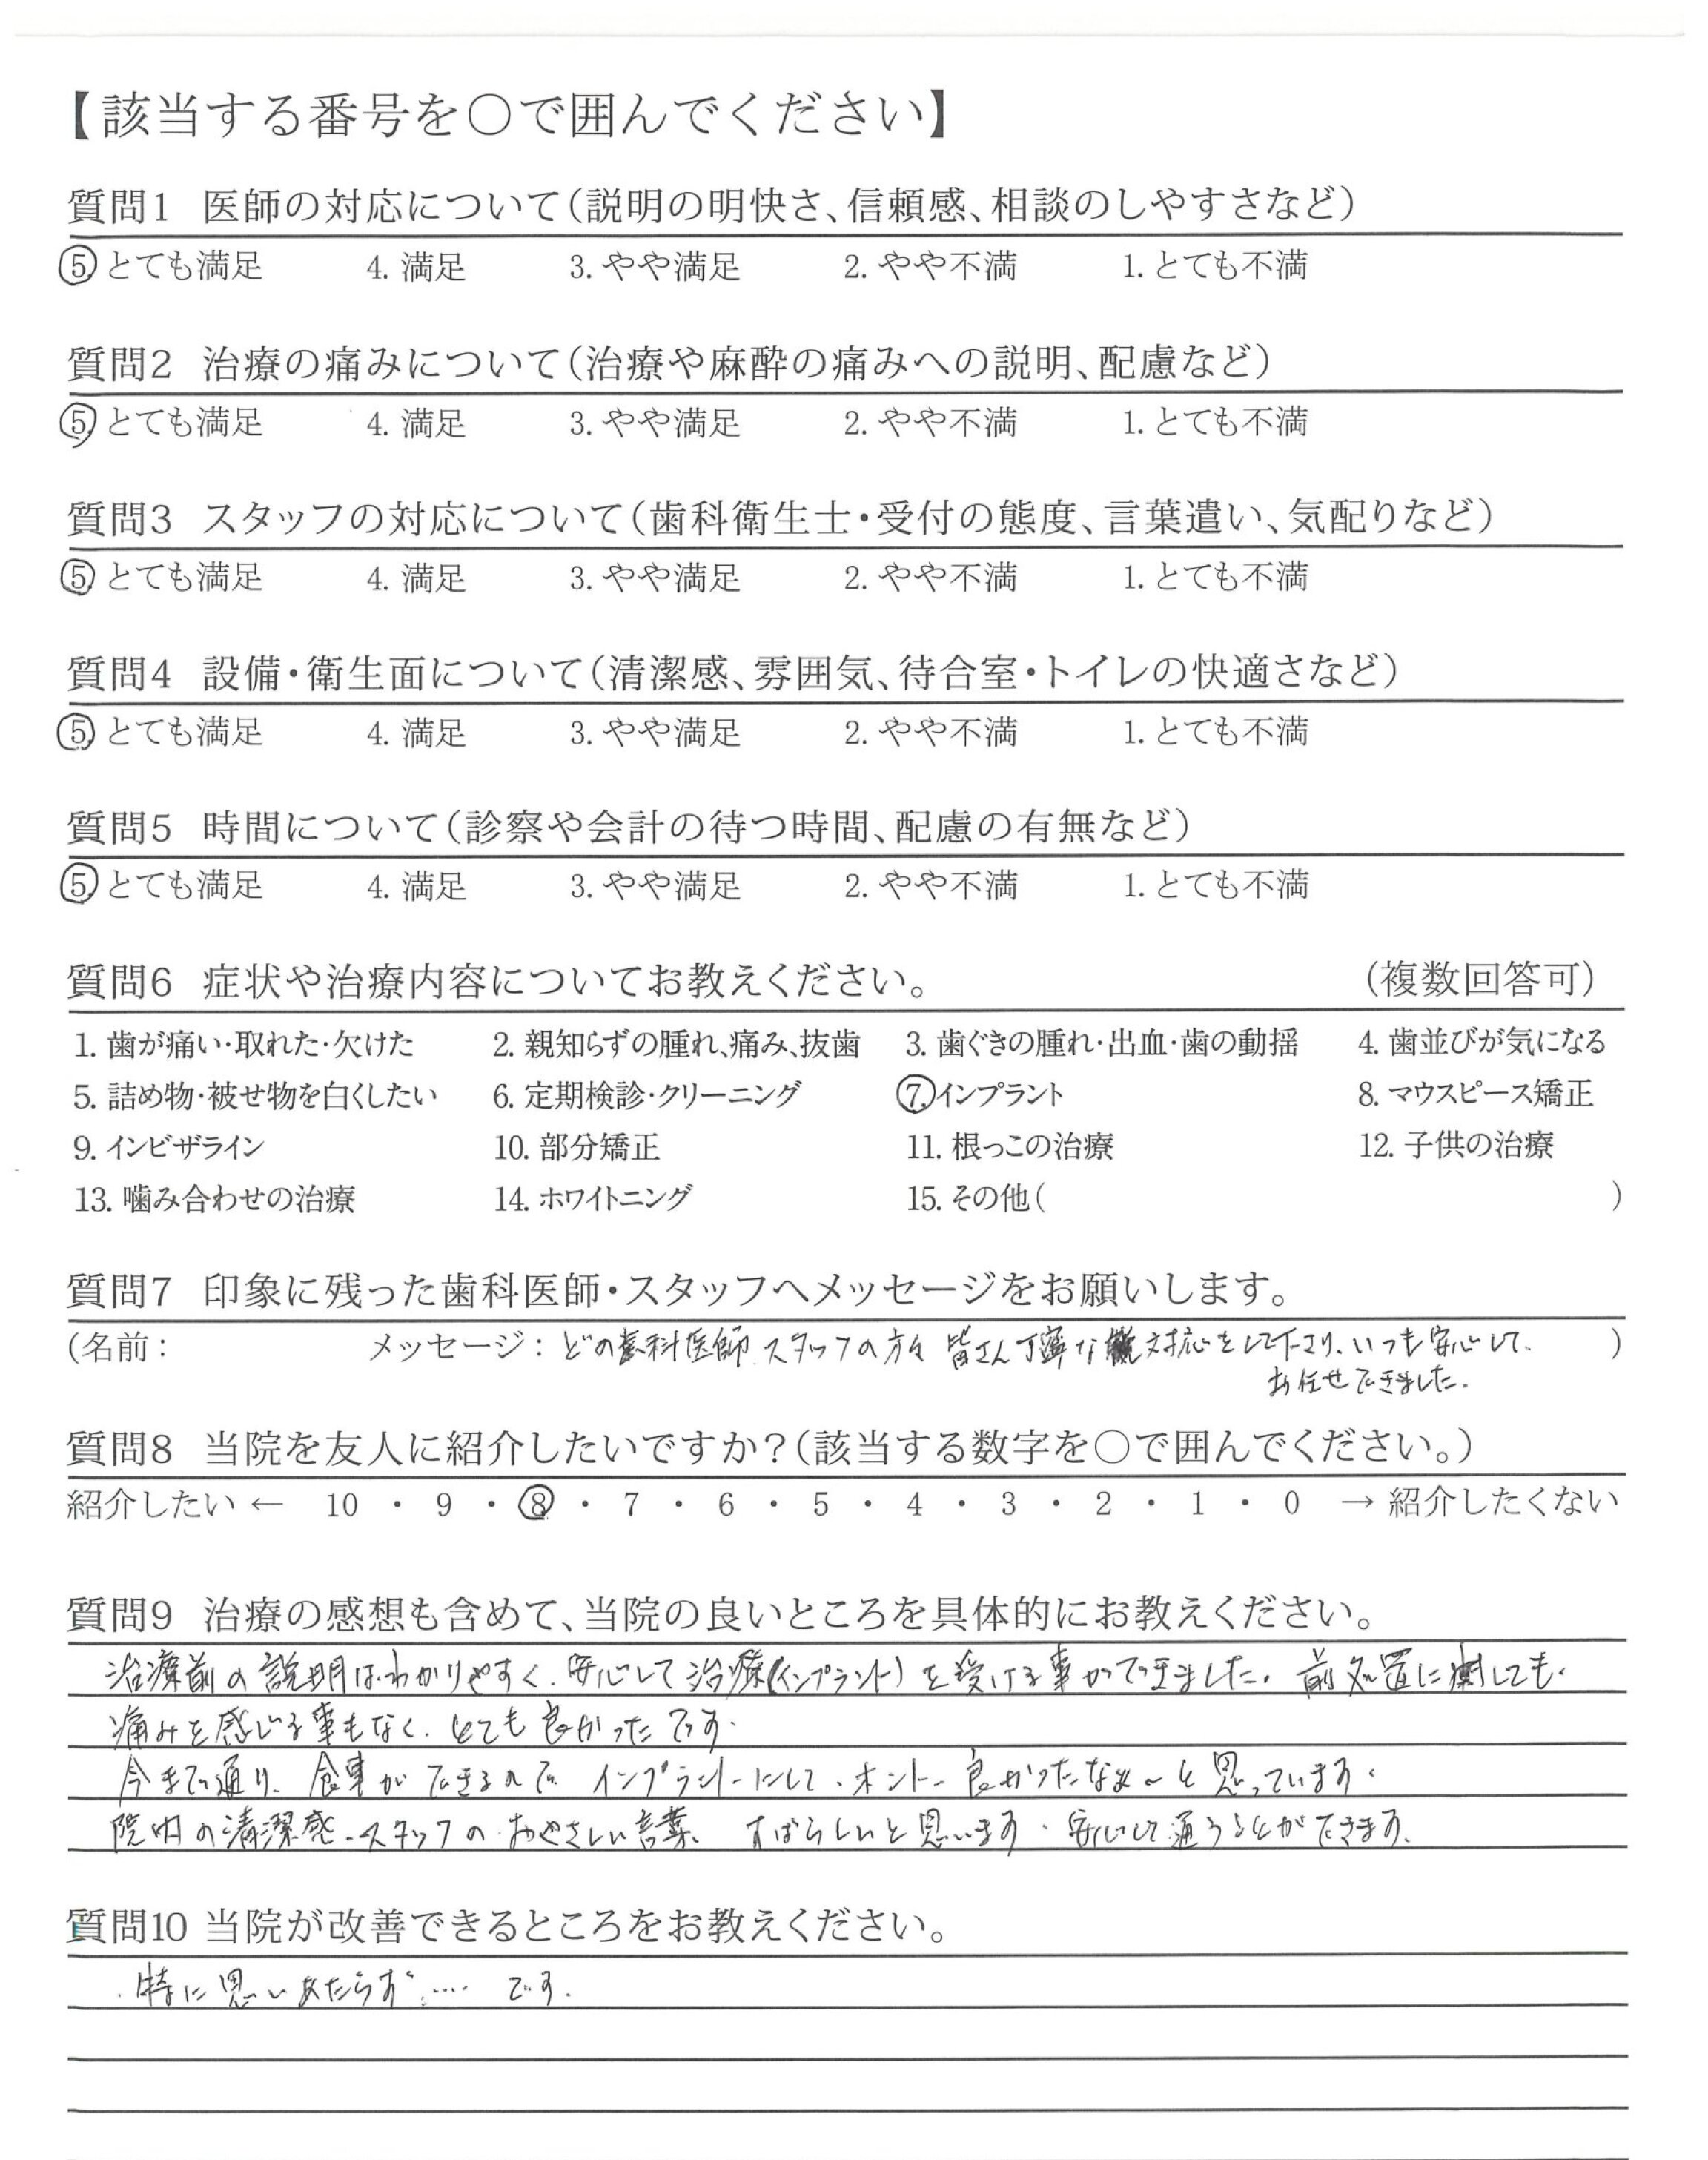 【該当する番号を○で囲んでください】
質問1 医師の対応について（説明の明快さ、信頼感、相談のしやすさなど）
5. とても満足 4. 満足 3. やや満足 2. やや不満 1. とても不満
質問2 治療の痛みについて（治療や麻酔の痛みへの説明、配慮など）
5. とても満足 4. 満足 3. やや満足 2. やや不満 1. とても不満
質問3 スタッフの対応について（歯科衛生士・受付の態度、言葉遣い、気配りなど）
5. とても満足 4. 満足 3. やや満足 2. やや不満 1. とても不満
質問4 設備・衛生面について（清潔感、雰囲気、待合室・トイレの快適さなど）
5. とても満足 4. 満足 3. やや満足 2. やや不満 1. とても不満
質問5 時間について（診察や会計の待つ時間、配慮の有無など）
5. とても満足 4. 満足 3. やや満足 2. やや不満 1. とても不満
質問6 症状や治療内容についてお教えください。 （複数回答可）
1. 歯が痛い・取れた・欠けた 2. 親知らずの腫れ、痛み、抜歯 3. 歯ぐきの腫れ・出血・歯の動揺 4. 歯並びが気になる
5. 詰め物・被せ物を白くしたい 6. 定期検診・クリーニング 7. インプラント 8. マウスピース矯正
9. インビザライン 10. 部分矯正 11. 根っこの治療 12. 子供の治療
13. 噛み合わせの治療 14. ホワイトニング 15. その他( )
質問7 印象に残った歯科医師・スタッフへメッセージをお願いします。
(名前： メッセージ：どの歯科医師、スタッフの方々 皆さん丁寧な対応をして下さり、いつも安心して )
お任せできました。
質問8 当院を友人に紹介したいですか？（該当する数字を○で囲んでください。）
紹介したい ← 10 ・ 9 ・ 8 ・ 7 ・ 6 ・ 5 ・ 4 ・ 3 ・ 2 ・ 1 ・ 0 → 紹介したくない
質問9 治療の感想も含めて、当院の良いところを具体的にお教えください。
治療前の説明はわかりやすく、安心して治療(インプラント)を受ける事ができました。前処置に関しても、
痛みを感じる事もなく、とても良かったです。
今まで通り、食事ができるので インプラントにして、ホント 良かったなぁ〜と思っています。
院内の清潔感、スタッフの おやさしい言葉、すばらしいと思います。安心して通うことができます。
質問10 当院が改善できるところをお教えください。
・特に思いあたらず…… です。